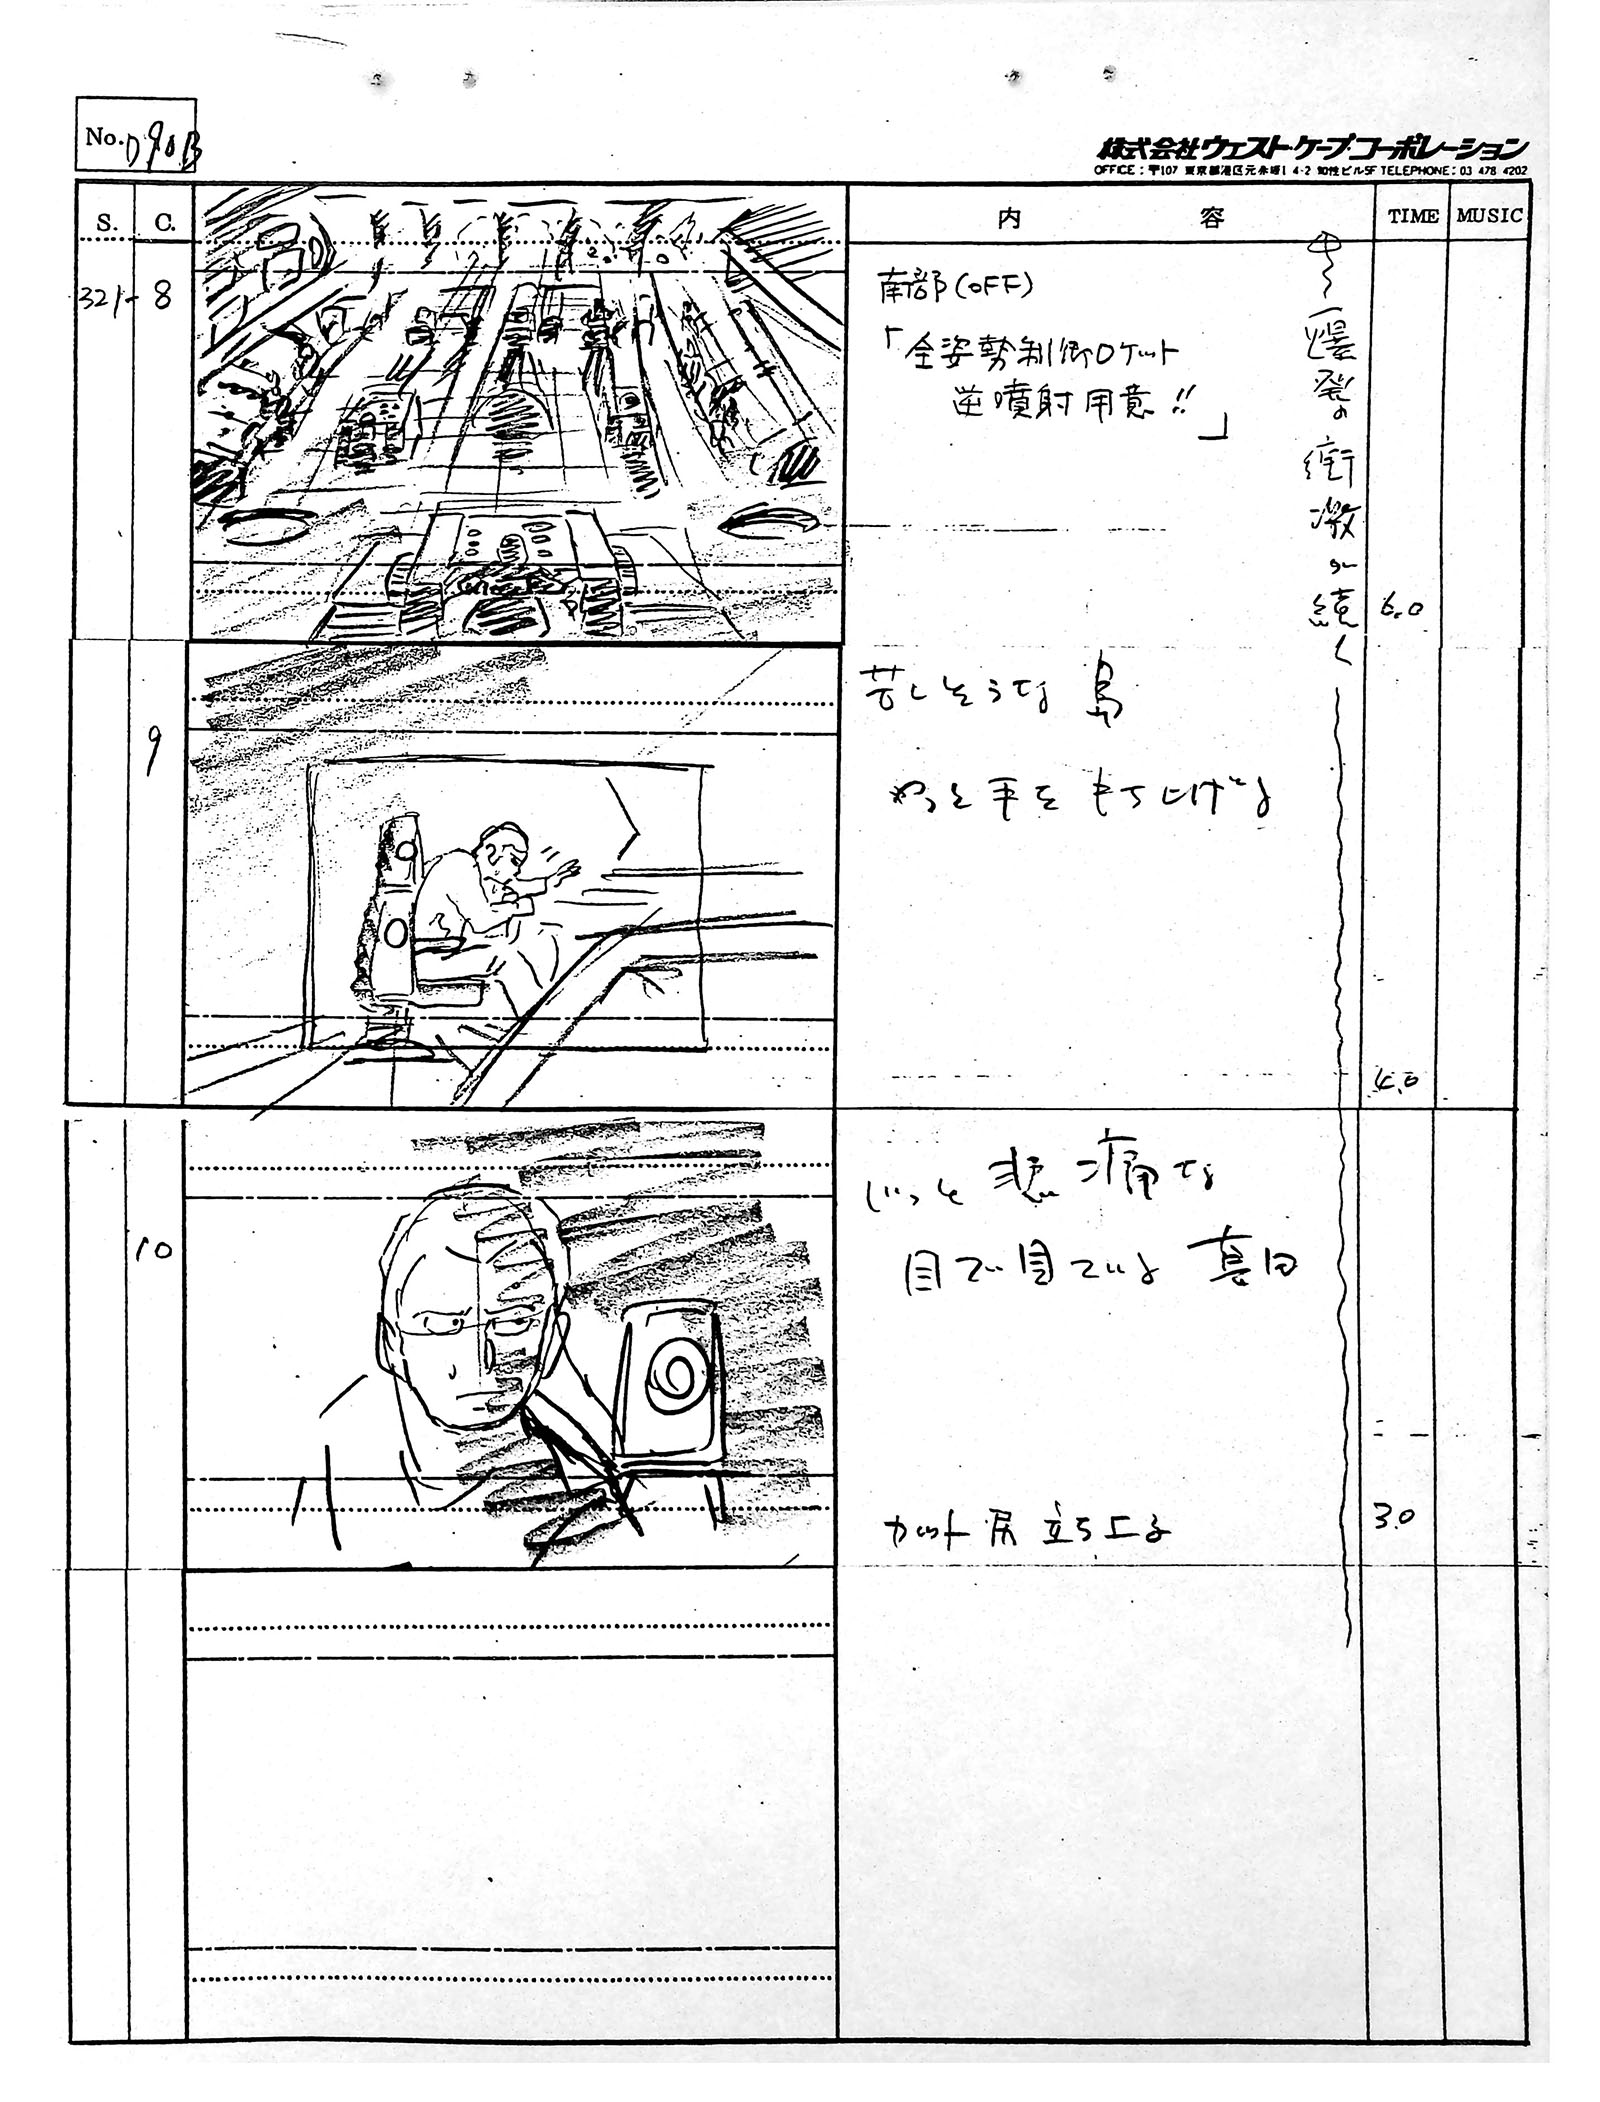 No. D90B
株式会社ウエスト・ケープ・コーポレーション
OFFICE：〒107 東京都港区元赤坂1 4-2 知性ビル5F TELEPHONE：03 478 4202
S. C. 内容 TIME MUSIC
321-8
南部(OFF)
「全姿勢制御ロケット
逆噴射用意!!」
爆発の衝激が続く
6.0
9
苦しそうな島
やっと手をもち上げる
4.0
10
じっと悲痛な
目で見ている真田
カット尻立ち上る
3.0